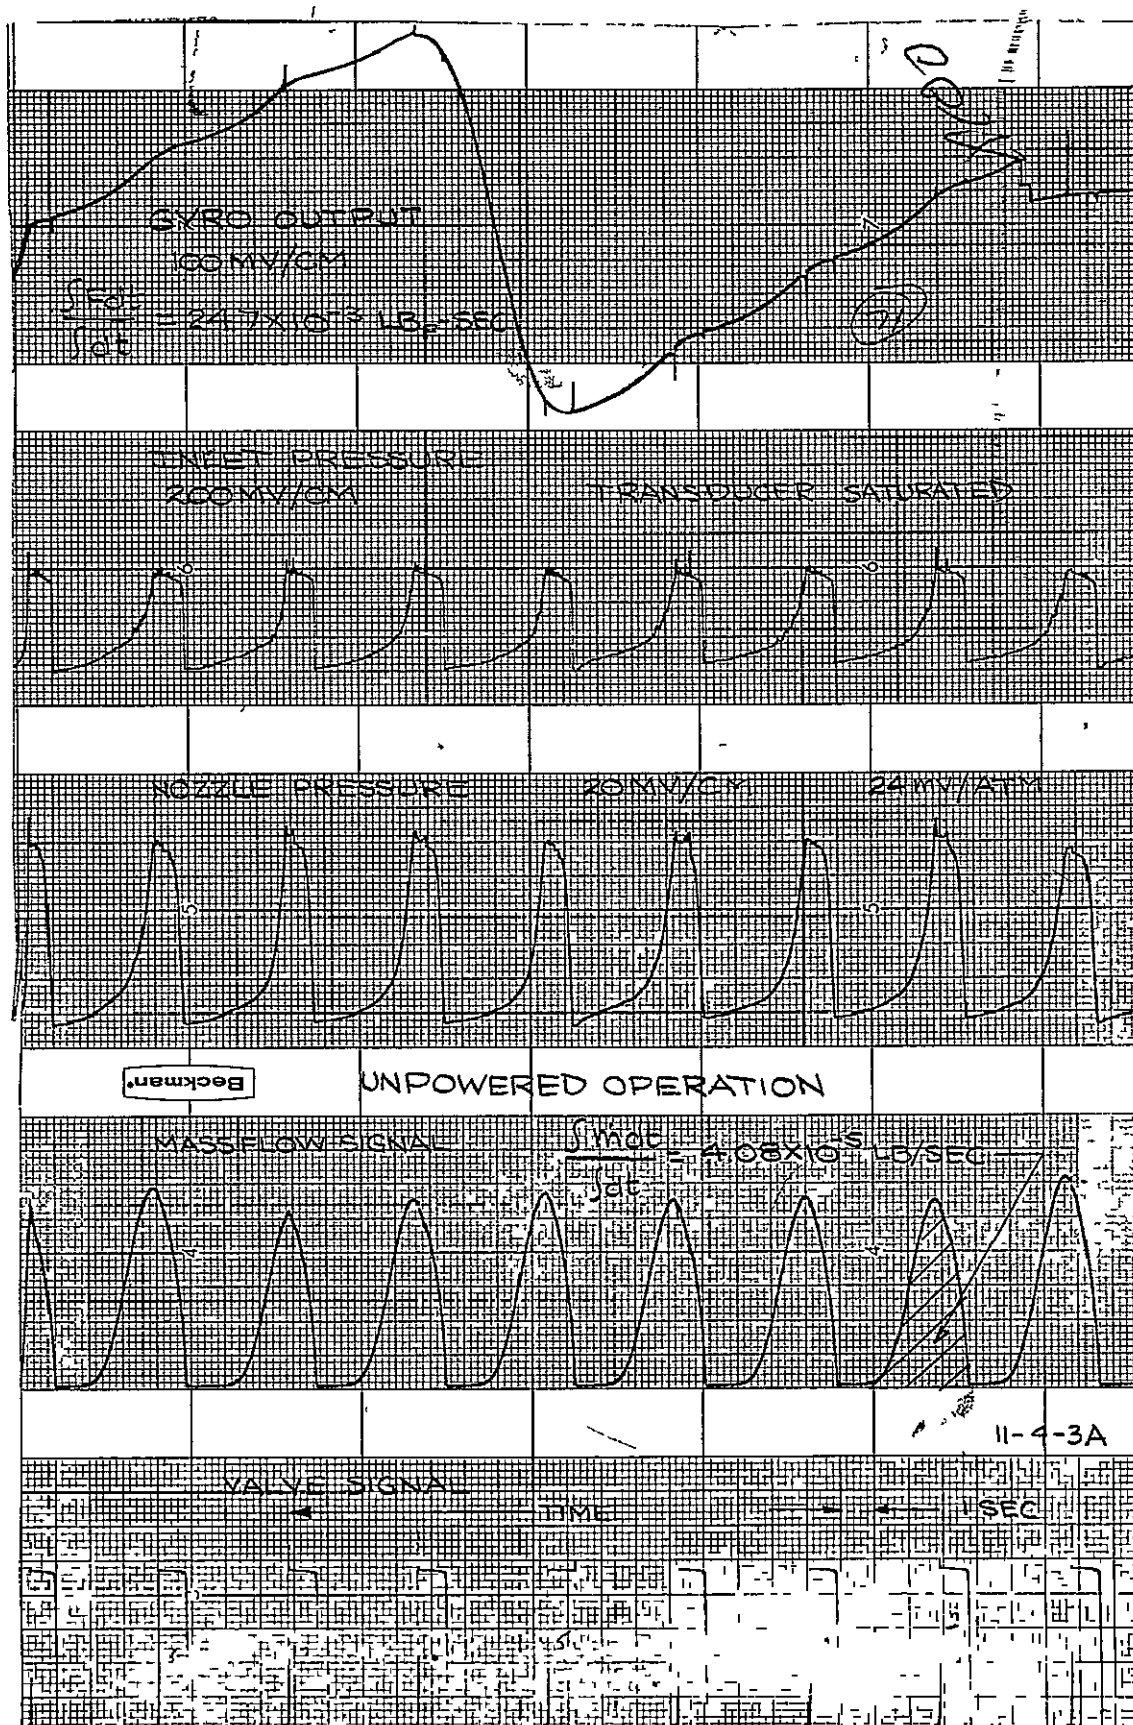 GYRO OUTPUT
100 MV/CM
∫Fdt
∫dt
= 24.7X10⁻³ LB_F-SEC
7
71
INLET PRESSURE
200MV/CM
TRANSDUCER SATURATED
6
6
NOZZLE PRESSURE 20MV/CM 24MV/ATM
5
5
Beckman
UNPOWERED OPERATION
MASSFLOW SIGNAL
∫ṁdt
∫dt
= 4.08X10⁻⁵ LB/SEC
4
4
11-4-3A
VALVE SIGNAL
TIME
1 SEC